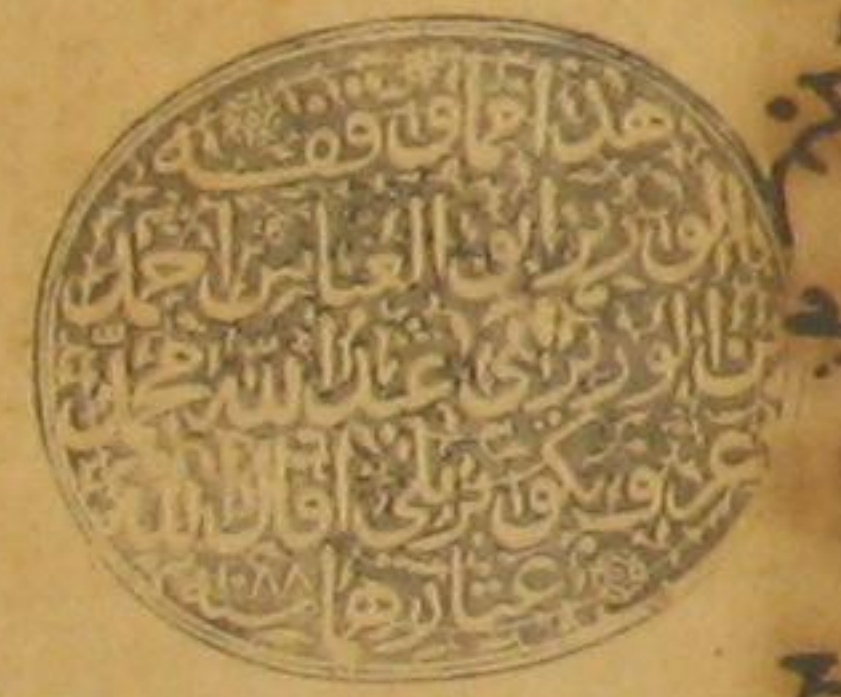 هذا مما وقفه
الوزير ابو العباس احمد
بن الوزير ابي عبد الله محمد
عرف بكوپريلي اقال الله
عثارهما سنة ١٠٨٨